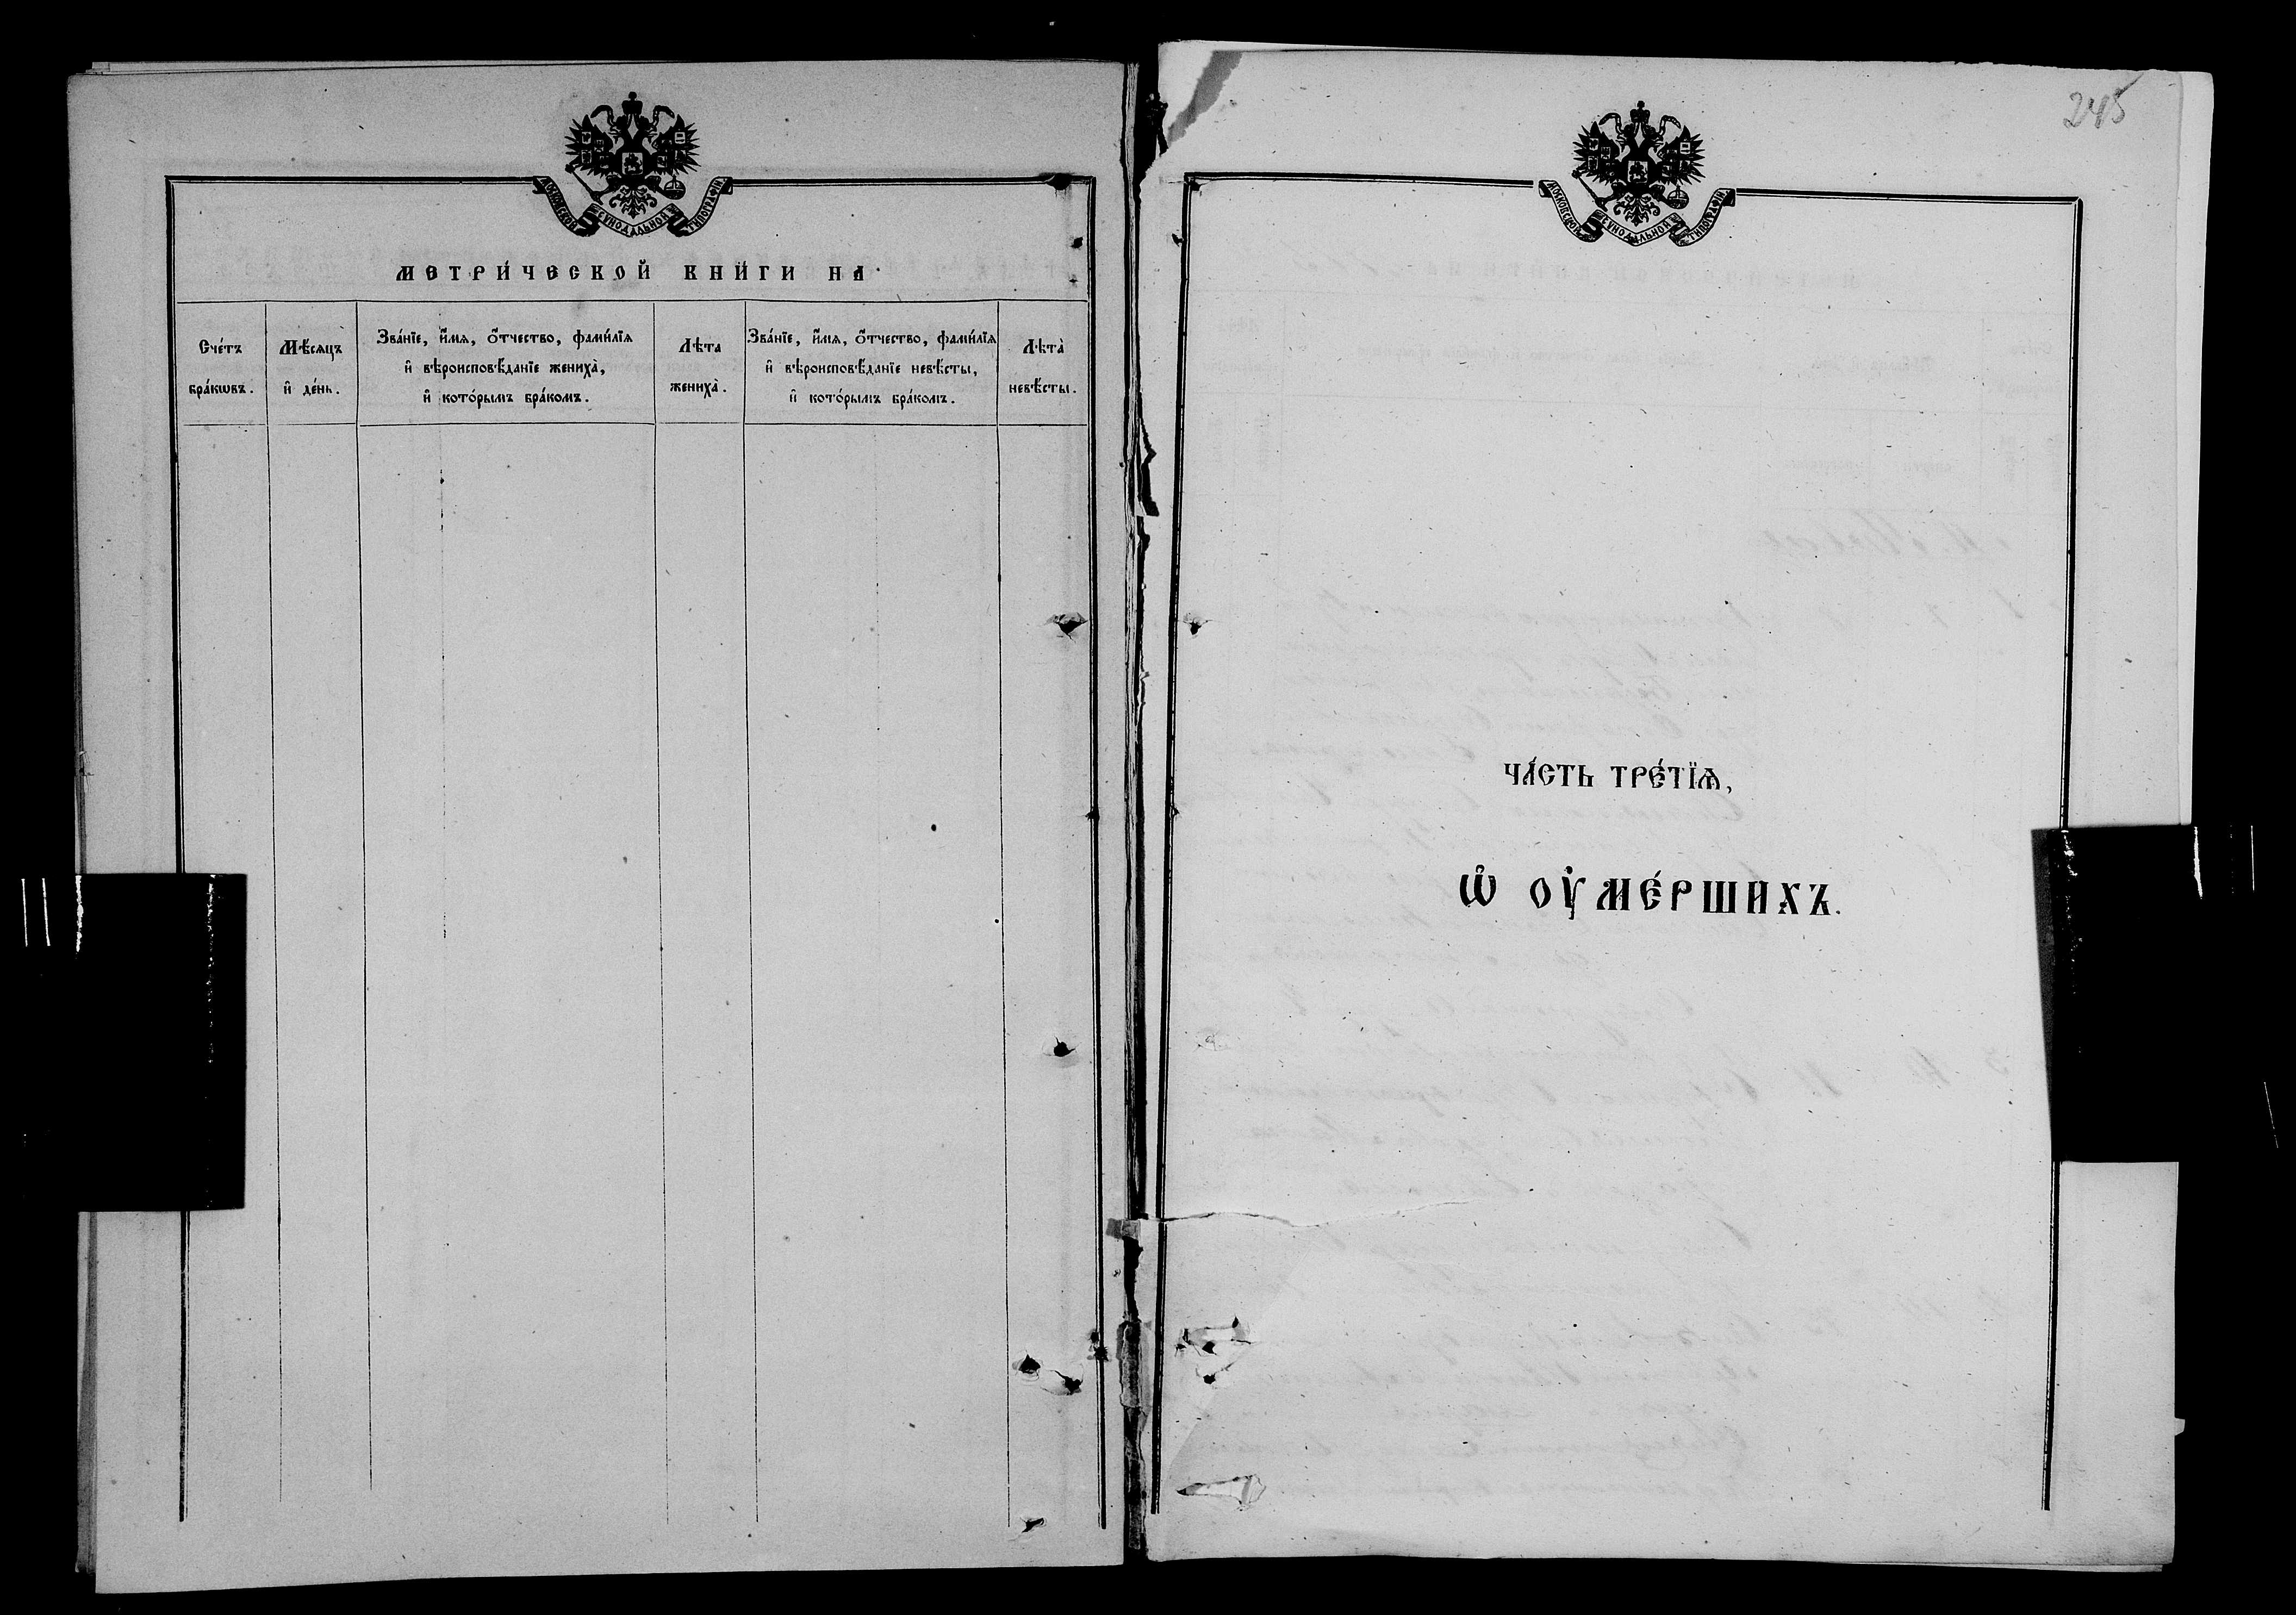 МОСКОВСКОЙ СѴНОДАЛЬНОЙ ТИПОГРАФІИ
МЕТРИ́ЧЕСКОЙ КНИ́ГИ НА
Сче́тъ
бра́кѡвъ.
Мѣ́сяцъ
и҆ де́нь.
Зва́нїе, и҆́мя, ѻ҆́тчество, фами́лїя
и҆ вѣроисповѣ́данїе жениха̀,
и҆ кото́рымъ бра́комъ.
Лѣ́та
жениха̀.
Зва́нїе, и҆́мя, ѻ҆́тчество, фами́лїя
и҆ вѣроисповѣ́данїе невѣ́сты,
и҆ кото́рымъ бра́комъ.
Лѣта̀
невѣ́сты.
245
МОСКОВСКОЙ СѴНОДАЛЬНОЙ ТИПОГРАФІИ
ЧА́СТЬ ТРЕ́ТЇѦ,
Ѽ ОУ҆МЕ́РШИХЪ.